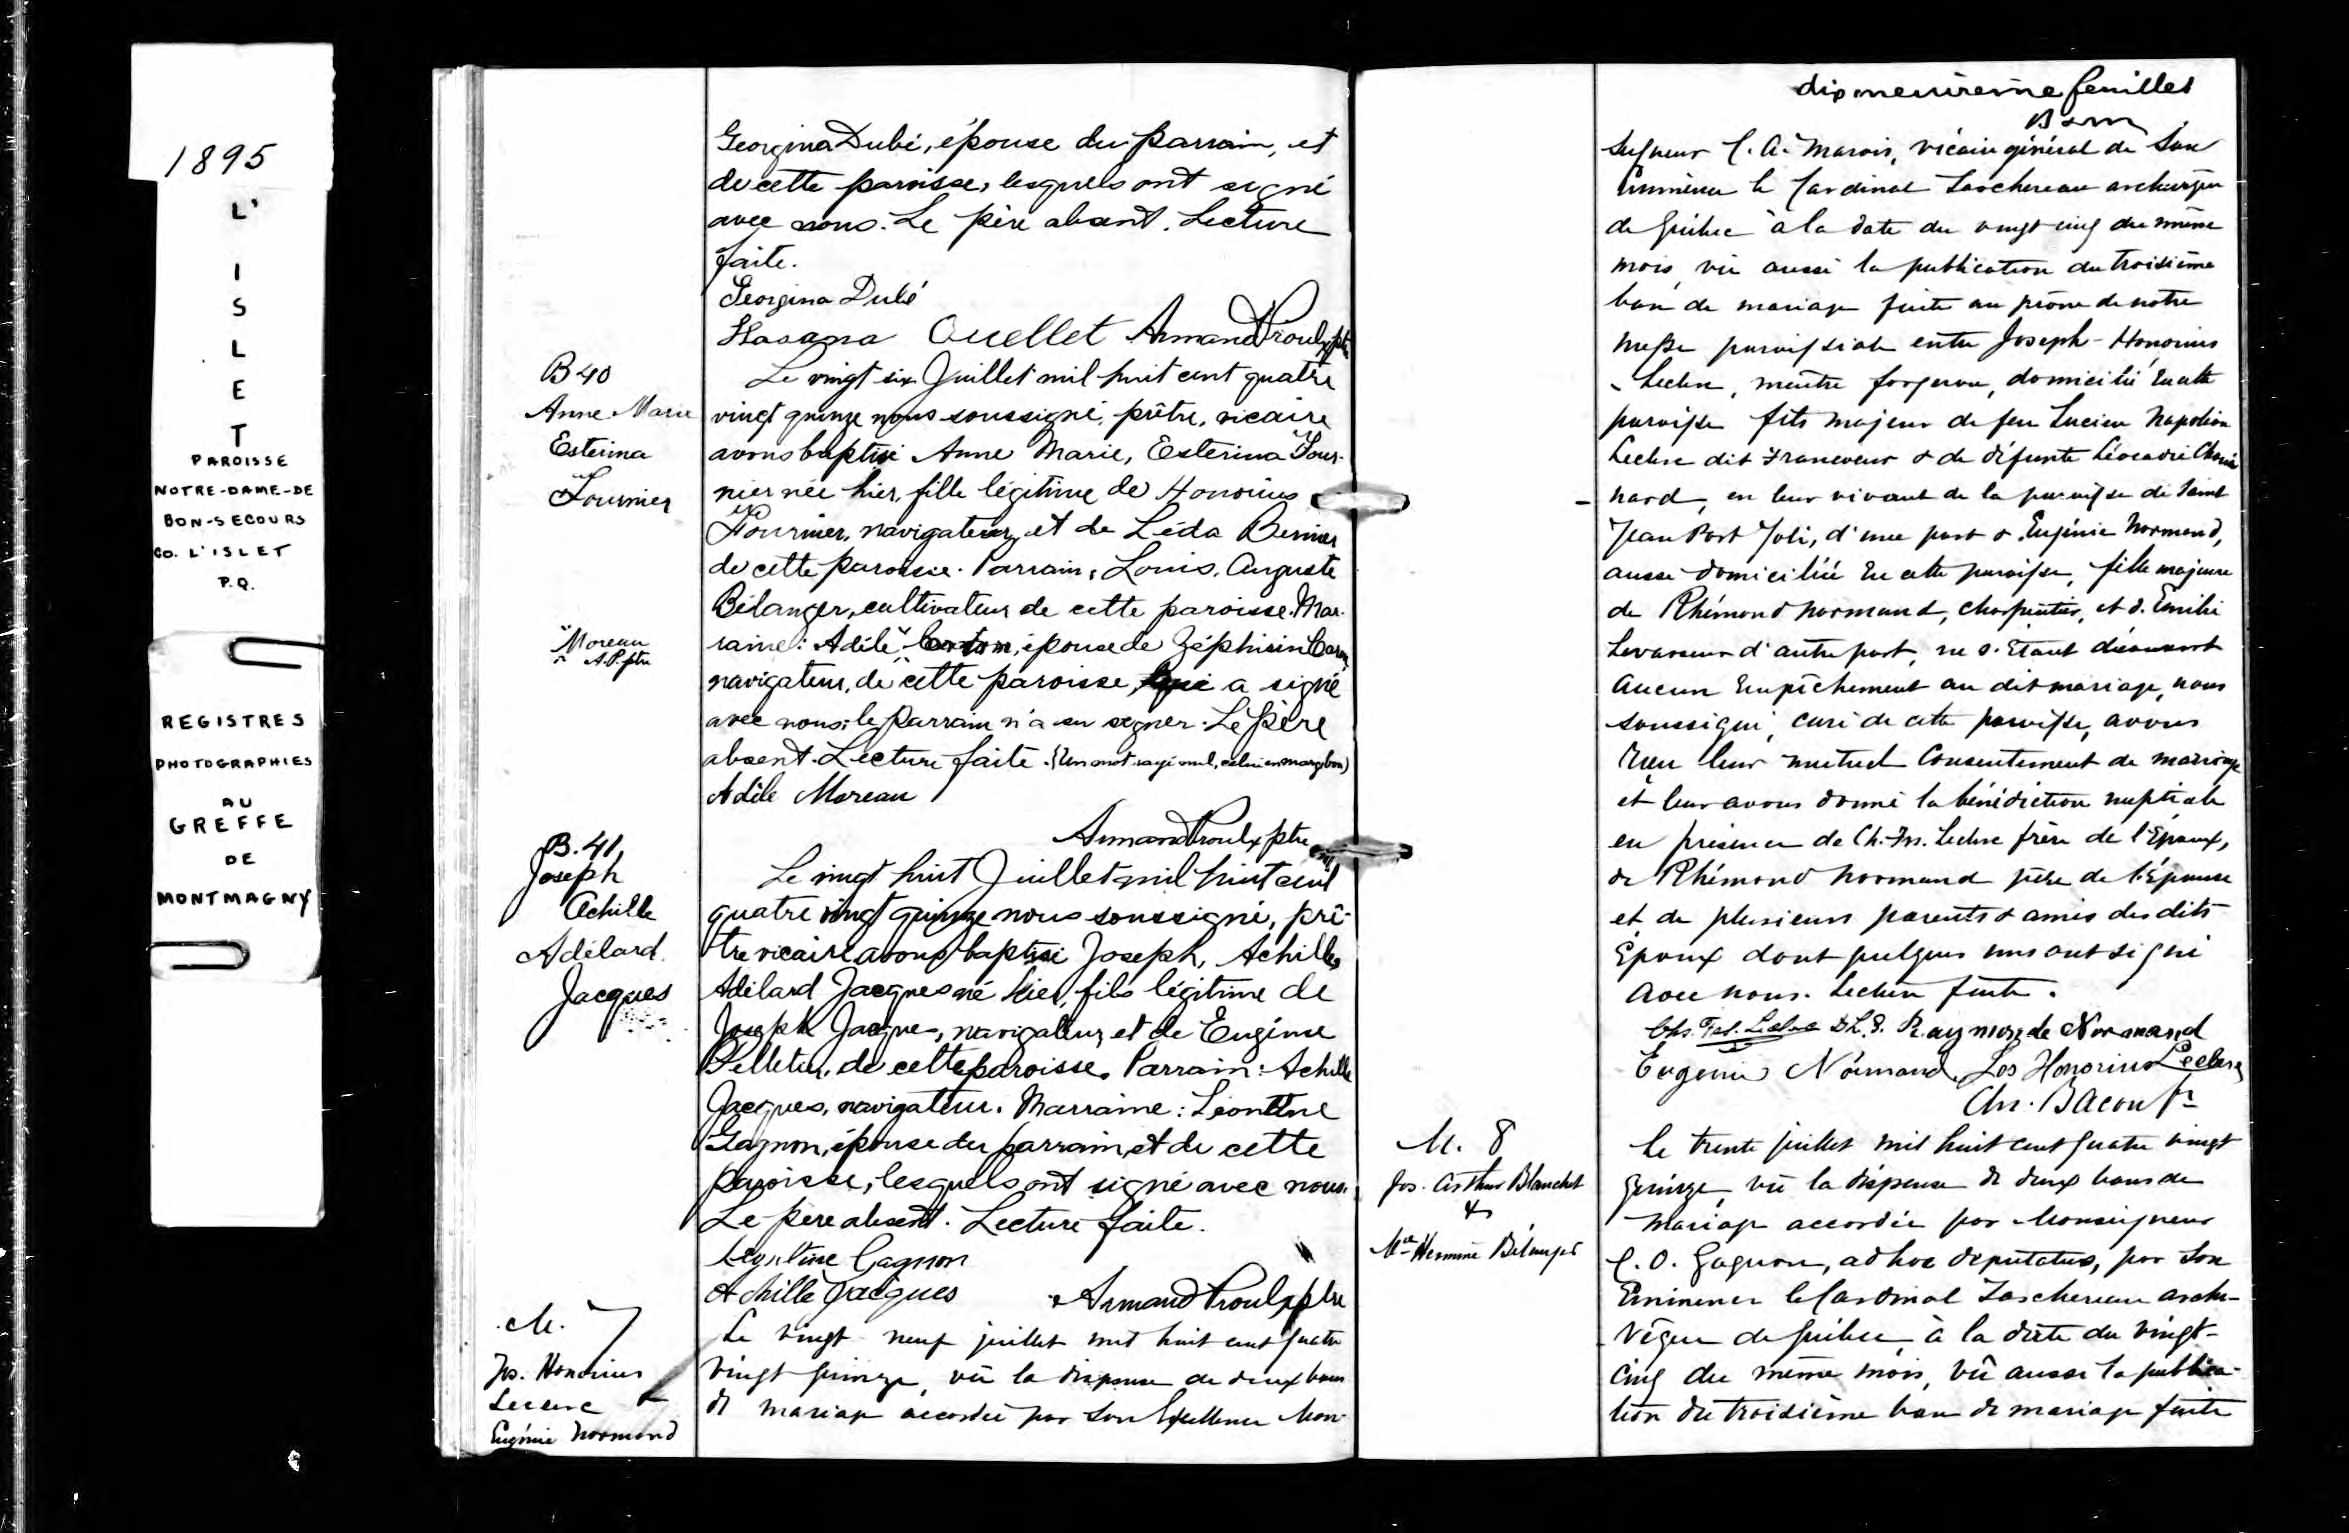 1895
L'
I
S
L
E
T
PAROISSE
NOTRE-DAME-DE
BON-SECOURS
CO. L'ISLET
P.Q.
REGISTRES
PHOTOGRAPHIES
AU
GREFFE
DE
MONTMAGNY
Georgina Dubé, épouse du parrain, et
de cette paroisse, lesquels ont signé
avec nous. Le père absent. Lecture
faite.
Georgina Dubé
Ouellet Armand Proulx ptre
B 40
Anne Marie
Esterina
Fournier
Le vingt six Juillet mil huit cent quatre
vingt quinze nous soussigné, prêtre, vicaire
avons baptisé Anne Marie, Esterina Four-
nier née hier, fille légitime de Honorius
Fournier, navigateur, et de Léda Bernier
de cette paroisse. Parrain, Louis, Auguste
Bélanger, cultivateur de cette paroisse. Mar-
raine: Adèle épouse de Zéphirin Caron,
navigateur, de cette paroisse, qui a signé
avec nous; le parrain n'a su signer. Le père
absent. Lecture faite. (Un mot rayé nul, celui en marge bon)
Moreau
A.P. ptre
Adèle Moreau
Armand Proulx ptre
B. 41
Joseph
Achille
Adélard
Jacques
Le vingt huit Juillet mil huit cent
quatre vingt quinze nous soussigné, prê-
tre vicaire avons baptisé Joseph, Achille,
Adélard Jacques né hier, fils légitime de
Joseph Jacques, navigateur, et de Eugénie
Pelletier, de cette paroisse. Parrain: Achille
Jacques, navigateur. Marraine: Léontine
Gagnon, épouse du parrain, et de cette
paroisse, lesquels ont signé avec nous.
Le père absent. Lecture faite.
Léontine Gagnon
Achille Jacques Armand Proulx ptre
M. 7
Jos. Honorius
Leclerc
&
Eugénie Normand
Le vingt neuf juillet mil huit cent quatre
vingt quinze, vû la dispense de deux bans
de mariage accordée par Son Excellence Mon-
dix neuvième feuillet
seigneur C. A. Marois, vicaire général de Son
Eminence le Cardinal Taschereau archevêque
de Québec à la date du vingt cinq du même
mois, vû aussi la publication du troisième
ban de mariage faite au prône de notre
messe paroissiale entre Joseph-Honorius
Leclerc, maître forgeron, domicilié en cette
paroisse fils majeur de feu Lucien Napoléon
Leclerc dit Francoeur & de défunte Léocadie Choui-
nard, en leur vivant de la paroisse de Saint
Jean Port Joli, d'une part & Eugénie Normand,
aussi domiciliée en cette paroisse, fille majeure
de Rhémond Normand, charpentier, et d. Emilie
Levasseur d'autre part, ne s'étant découvert
aucun empêchement au dit mariage, nous
soussigné, curé de cette paroisse, avons
reçu leur mutuel consentement de mariage
et leur avons donné la bénédiction nuptiale
en présence de Ch. Frs. Leclerc frère de l'Epoux,
de Rhémond Normand père de l'Epouse
et de plusieurs parents & amis des dits
Epoux dont quelques uns ont signé
avec nous. Lecture faite.
Chs. Frs. Leclerc Raymonde Normand
Eugenie Normand Jos Honorius Leclerc
Chs. Bacon Ptre
M. 8
Jos. Arthur Blanchet
&
Mie Hermine Bélanger
Le trente juillet mil huit cent quatre vingt
quinze, vû la dispense de deux bans de
mariage accordée par Monseigneur
C. O. Gagnon, ad hoc deputatus, par Son
Eminence le Cardinal Taschereau arche-
vêque de Québec, à la date du vingt-
cinq du même mois, vû aussi la publica-
tion du troisième ban de mariage faite